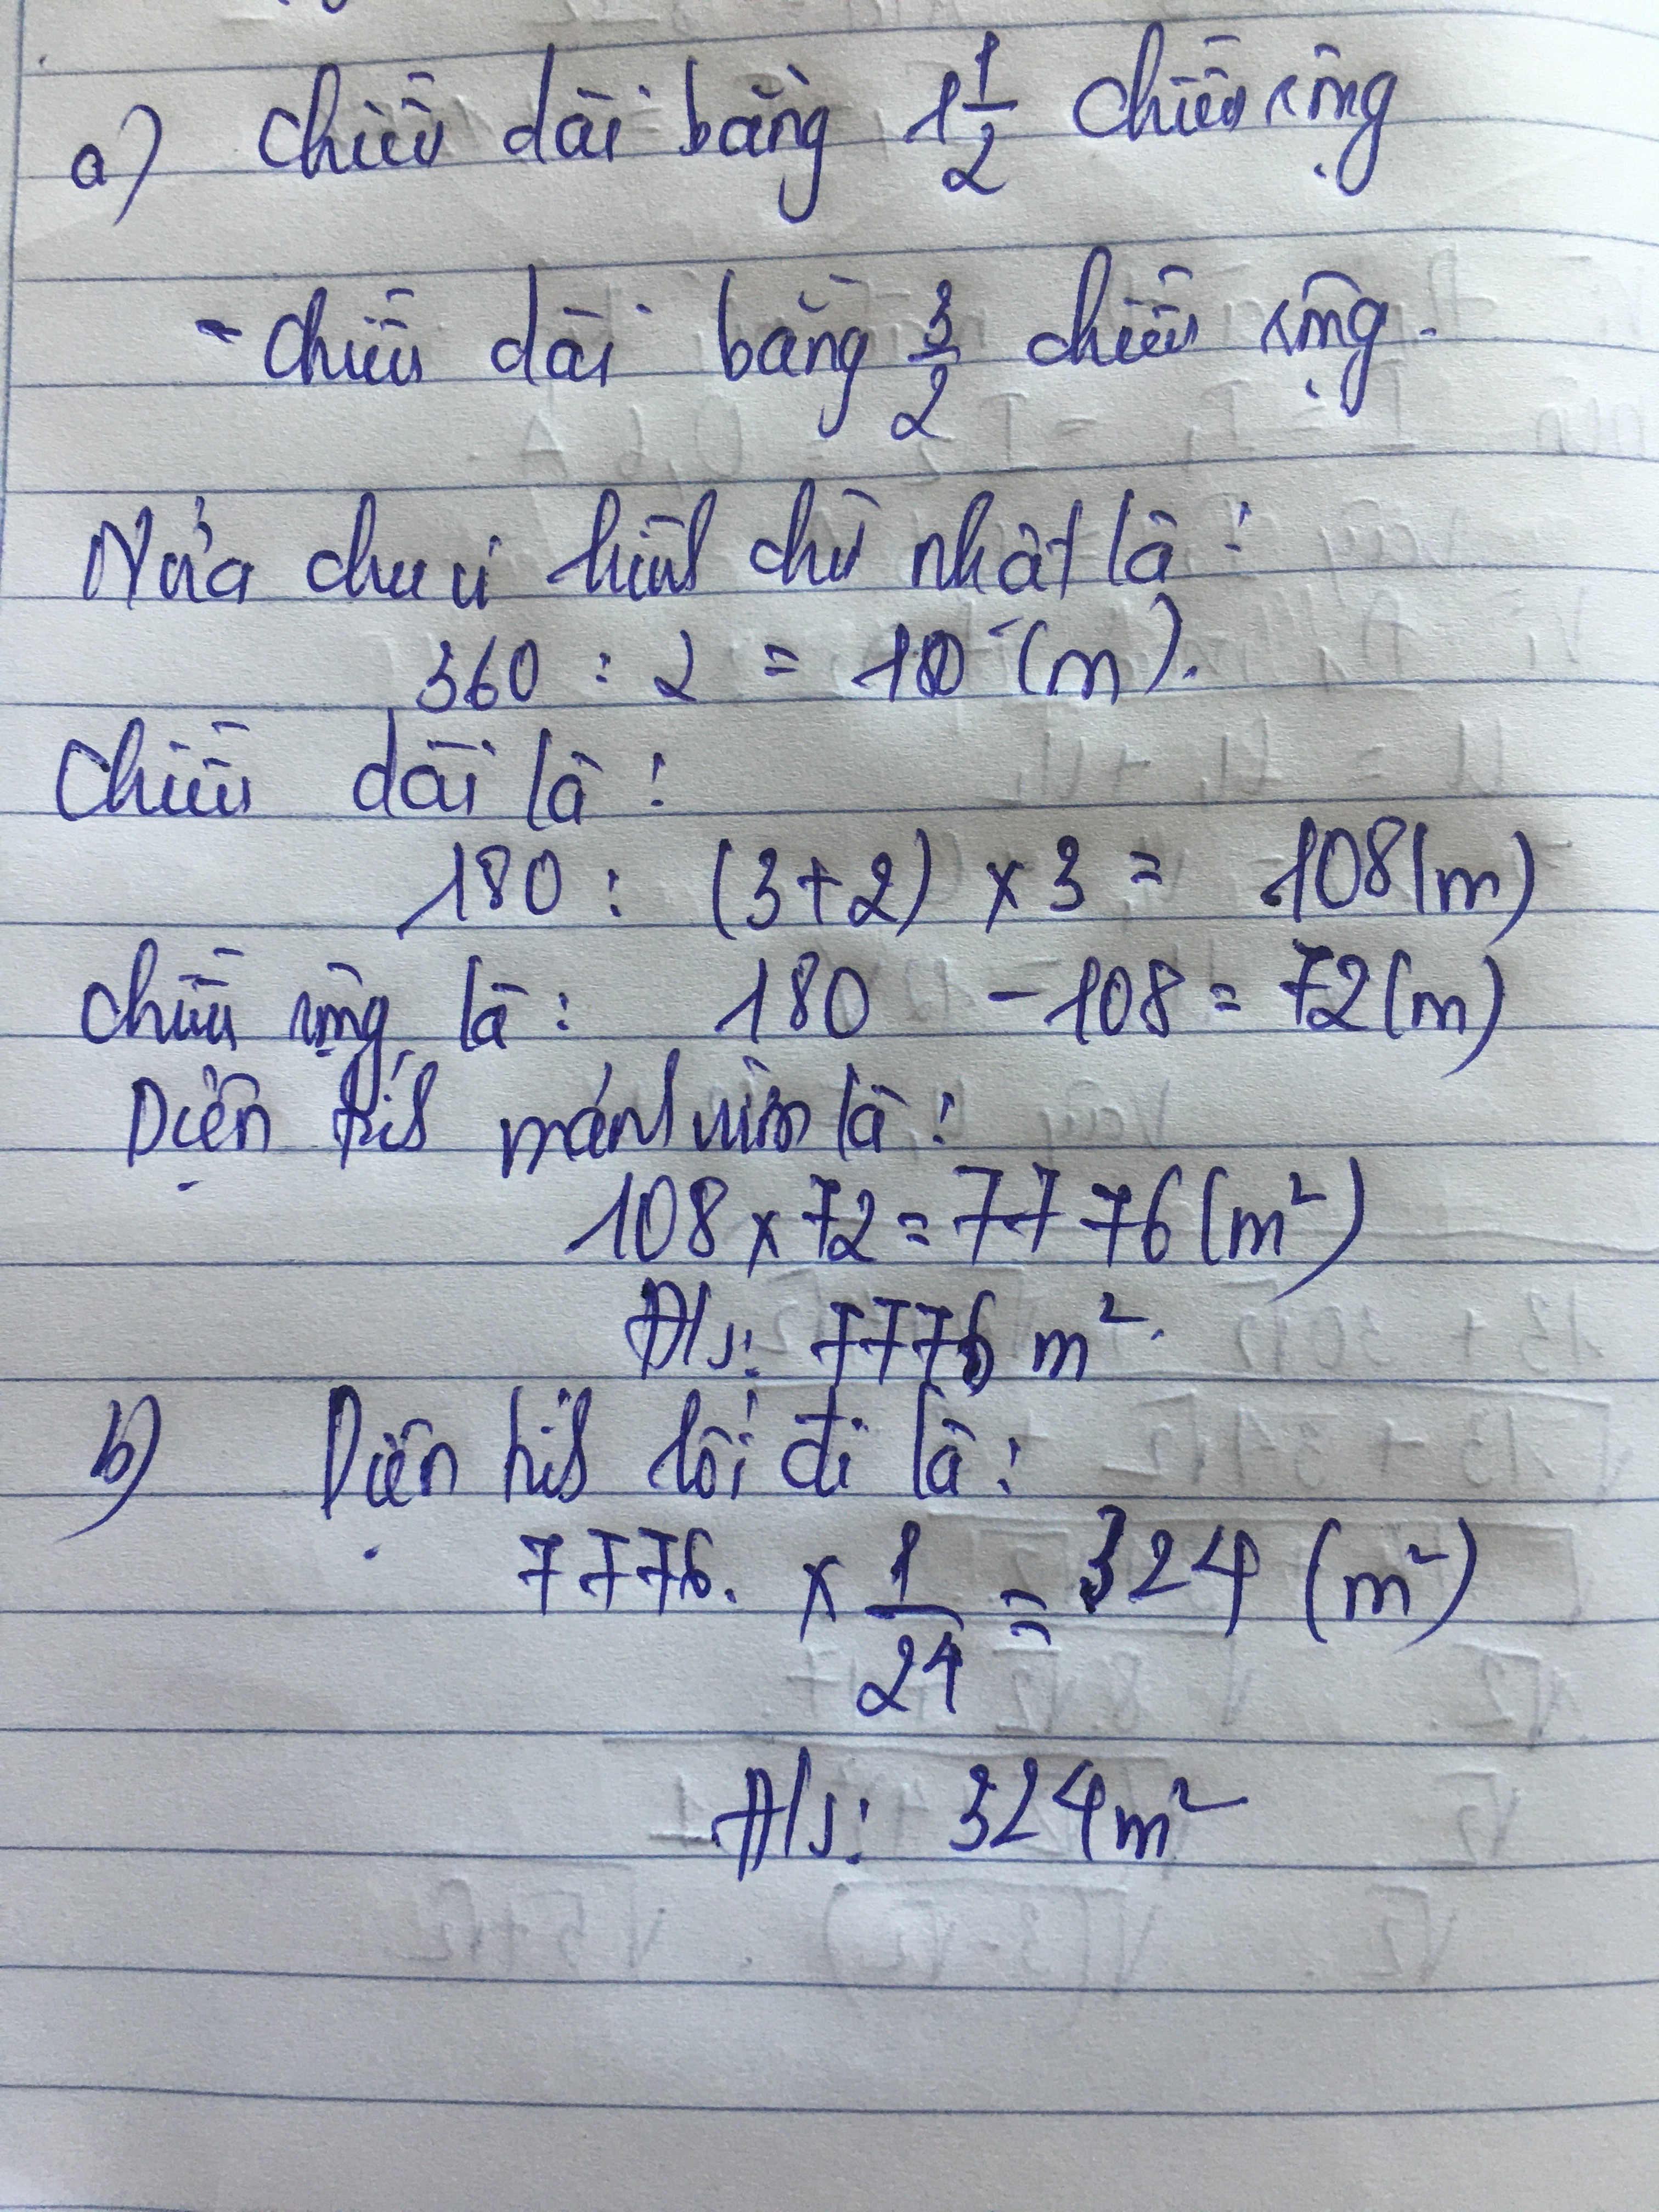 a) Chiều dài bằng 1 1/2 chiều rộng
- Chiều dài bằng 3/2 chiều rộng.
Nửa chu vi hình chữ nhật là:
360 : 2 = 180 (m).
Chiều dài là:
180 : (3+2) x 3 = 108 (m)
Chiều rộng là: 180 - 108 = 72 (m)
Diện tích mảnh vườn là:
108 x 72 = 7776 (m²)
Đ/s: 7776 m².
b) Diện tích lối đi là:
7776. x 1/24 = 324 (m²)
Đ/s: 324 m²